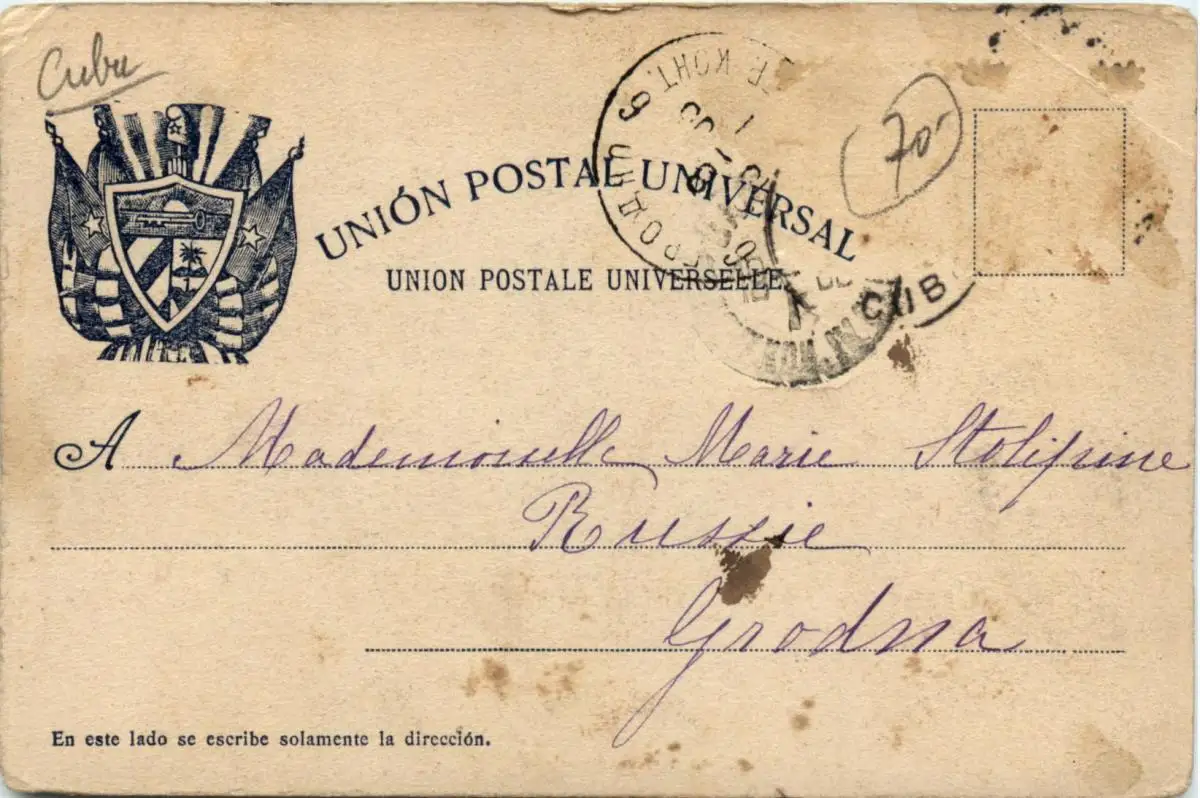 Cuba
70-
UNIÓN POSTAL UNIVERSAL
UNION POSTALE UNIVERSELLE.
CUB
A Mademoiselle Marie Stolipine
Russie
Grodna
En este lado se escribe solamente la dirección.